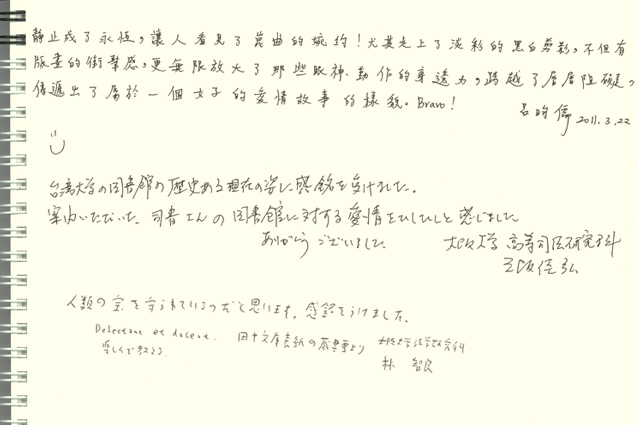 靜止成了永恆，讓人看見了崑曲的婉約！尤其是上了淡彩的黑白剪影，不但有
版畫的衝擊感，更無限放大了那些眼神、動作的穿透力，跨越了層層阻礙，
傳遞出了屬於一個女子的愛情故事的樣貌。Bravo！
2011.3.22
台湾大学の図書館の歴史ある現在の姿に感銘を受けました。
案内いただいた司書さんの図書館に対する愛情をひしひしと感じました
ありがとうございました 大阪大学 高等司法研究科
佳弘
人類の宝を守られているのだと思います。感銘をうけました。
Delectant et docent. 田中文庫表紙の蔵書票より
楽しくて教える
林 智良